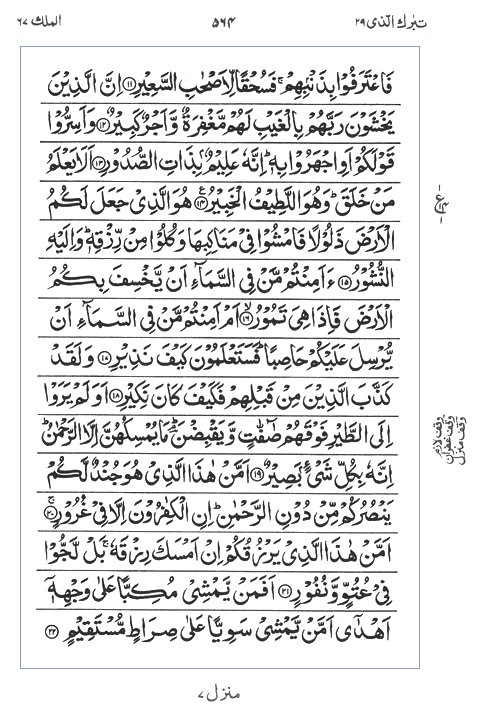 تبٰرك الذى ۲۹
۵۶۴
الملك ۶۷
فَاعْتَرَفُوْا بِذَنْۢبِهِمْ ۚ فَسُحْقًا لِّاَصْحٰبِ السَّعِيْرِ ۝۱۱ اِنَّ الَّذِيْنَ
يَخْشَوْنَ رَبَّهُمْ بِالْغَيْبِ لَهُمْ مَّغْفِرَةٌ وَّاَجْرٌ كَبِيْرٌ ۝۱۲ وَاَسِرُّوْا
قَوْلَكُمْ اَوِ اجْهَرُوْا بِهٖ ؕ اِنَّهٗ عَلِيْمٌۢ بِذَاتِ الصُّدُوْرِ ۝۱۳ اَلَا يَعْلَمُ
مَنْ خَلَقَ ؕ وَهُوَ اللَّطِيْفُ الْخَبِيْرُ ۝۱۴ هُوَ الَّذِيْ جَعَلَ لَكُمُ
الْاَرْضَ ذَلُوْلًا فَامْشُوْا فِيْ مَنَاكِبِهَا وَكُلُوْا مِنْ رِّزْقِهٖ ؕ وَاِلَيْهِ
النُّشُوْرُ ۝۱۵ ءَاَمِنْتُمْ مَّنْ فِي السَّمَآءِ اَنْ يَّخْسِفَ بِكُمُ
الْاَرْضَ فَاِذَا هِيَ تَمُوْرُ ۝۱۶ اَمْ اَمِنْتُمْ مَّنْ فِي السَّمَآءِ اَنْ
يُّرْسِلَ عَلَيْكُمْ حَاصِبًا ؕ فَسَتَعْلَمُوْنَ كَيْفَ نَذِيْرِ ۝۱۷ وَلَقَدْ
كَذَّبَ الَّذِيْنَ مِنْ قَبْلِهِمْ فَكَيْفَ كَانَ نَكِيْرِ ۝۱۸ اَوَلَمْ يَرَوْا
اِلَى الطَّيْرِ فَوْقَهُمْ صٰٓفّٰتٍ وَّيَقْبِضْنَ ؔۘؕ مَا يُمْسِكُهُنَّ اِلَّا الرَّحْمٰنُ ؕ
اِنَّهٗ بِكُلِّ شَيْءٍۭ بَصِيْرٌ ۝۱۹ اَمَّنْ هٰذَا الَّذِيْ هُوَ جُنْدٌ لَّكُمْ
يَنْصُرُكُمْ مِّنْ دُوْنِ الرَّحْمٰنِ ؕ اِنِ الْكٰفِرُوْنَ اِلَّا فِيْ غُرُوْرٍ ۝۲۰
اَمَّنْ هٰذَا الَّذِيْ يَرْزُقُكُمْ اِنْ اَمْسَكَ رِزْقَهٗ ۚ بَلْ لَّجُّوْا
فِيْ عُتُوٍّ وَّنُفُوْرٍ ۝۲۱ اَفَمَنْ يَّمْشِيْ مُكِبًّا عَلٰى وَجْهِهٖٓ
اَهْدٰٓى اَمَّنْ يَّمْشِيْ سَوِيًّا عَلٰى صِرَاطٍ مُّسْتَقِيْمٍ ۝۲۲
وقف لازم
وقف غفران
وقف منزل
منزل ۷